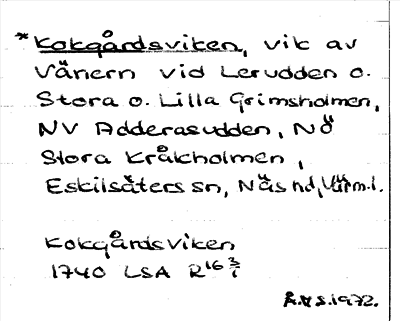 *Kokgårdsviken, vik av
Vänern vid Lerudden o.
Stora o. Lilla Grimsholmen,
NV Adderasudden, NÖ
Stora Kråkholmen,
Eskilsäters sn, Näs hd, Värml.
Kokgårdsviken
1740 LSA R16 3/1
1972.